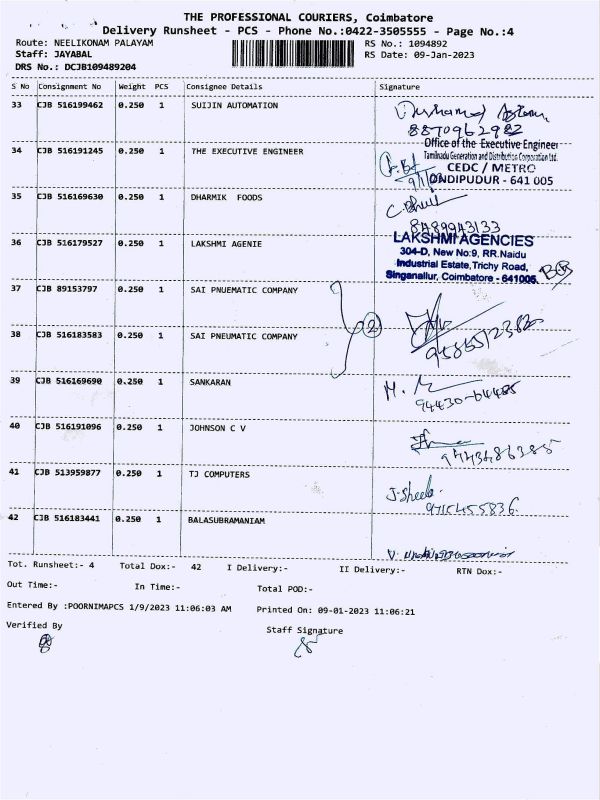 THE PROFESSIONAL COURIERS, Coimbatore
Delivery Runsheet - PCS - Phone No.:0422-3505555 - Page No.:4
Route: NEELIKONAM PALAYAM
RS No.: 1094892
Staff: JAYABAL
RS Date: 09-Jan-2023
DRS No.: DCJB109489204
S No Consignment No Weight PCS Consignee Details Signature
33 CJB 516199462 0.250 1 SUIJIN AUTOMATION
8870962982
34 CJB 516191245 0.250 1 THE EXECUTIVE ENGINEER
Office of the Executive Engineer
Tamilnadu Generation and Distribution Corporation Ltd.
CEDC / METRO
641 005
35 CJB 516169630 0.250 1 DHARMIK FOODS
8489943133
36 CJB 516179527 0.250 1 LAKSHMI AGENIE
LAKSHMI AGENCIES
304-D, New No:9, RR.Naidu
Industrial Estate,Trichy Road,
Singanallur, Coimbatore - 641005.
37 CJB 89153797 0.250 1 SAI PNUEMATIC COMPANY
2
38 CJB 516183583 0.250 1 SAI PNEUMATIC COMPANY
39 CJB 516169690 0.250 1 SANKARAN
94430-64485
40 CJB 516191096 0.250 1 JOHNSON C V
41 CJB 513959877 0.250 1 TJ COMPUTERS
J. Sheela
9715455836
42 CJB 516183441 0.250 1 BALASUBRAMANIAM
Tot. Runsheet:- 4 Total Dox:- 42 I Delivery:- II Delivery:- RTN Dox:-
Out Time:- In Time:- Total POD:-
Entered By :POORNIMAPCS 1/9/2023 11:06:03 AM Printed On: 09-01-2023 11:06:21
Verified By Staff Signature